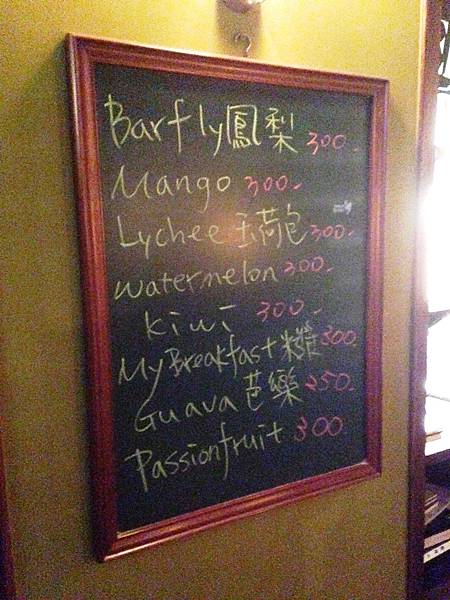 Barfly鳳梨 300.-
Mango 300.-
Lychee 玉荷包 300.-
watermelon 300.-
kiwi 300.-
My Breakfast 300.
Guava 芭樂 250.
Passionfruit 300.